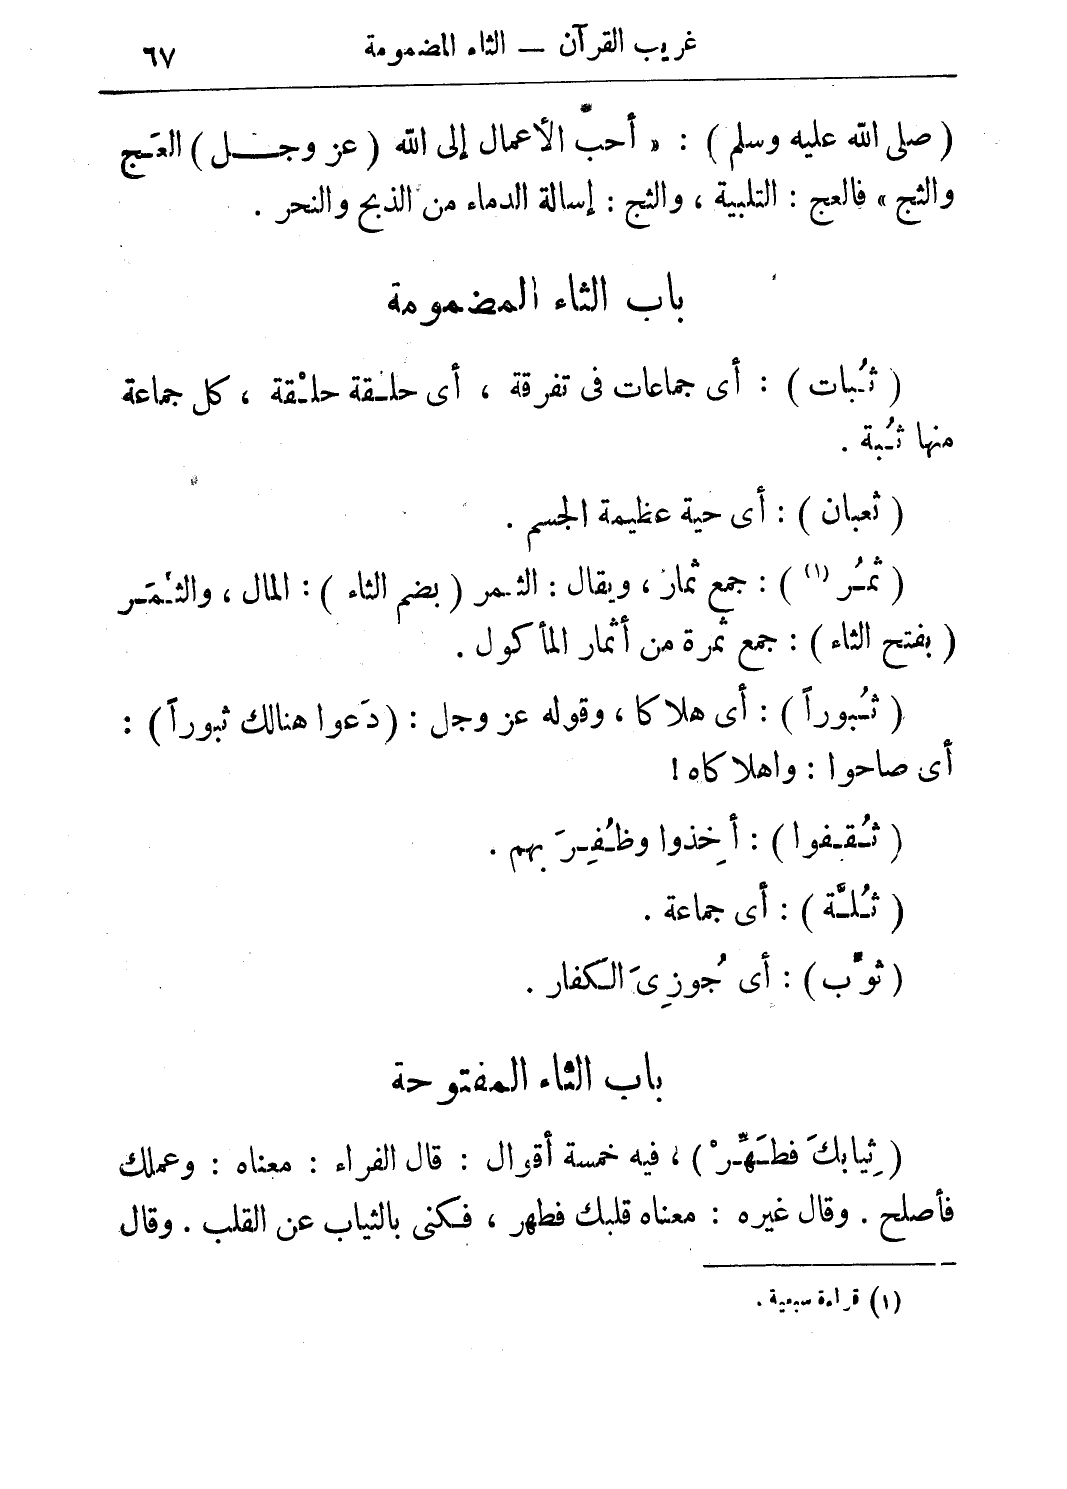 غريب القرآن — الثاء المضمومة ٦٧
( صلى الله عليه وسلم ) : « أحبّ الأعمال إلى الله ( عز وجل ) العَج
والثج » فالعج : التلبية ، والثج : إسالة الدماء من الذبح والنحر .
باب الثاء المضمومة
( ثُبات ) : أى جماعات فى تفرقة ، أى حلْقة حلْقة ، كل جماعة
منها ثُبة .
( ثعبان ) : أى حية عظيمة الجسم .
( ثمُر (١) ) : جمع ثمار ، ويقال : الثمر ( بضم الثاء ) : المال ، والثَمَر
( بفتح الثاء ) : جمع ثمرة من أثمار المأكول .
( ثُبوراً ) : أى هلاكا ، وقوله عز وجل : ( دَعوا هنالك ثبوراً ) :
أى صاحوا : واهلاكاه !
( ثُقِفوا ) : أخِذوا وظُفِرَ بهم .
( ثُلَّة ) : أى جماعة .
( ثوّب ) : أى جُوزِىَ الكفار .
باب الثاء المفتوحة
( ثِيابكَ فطَهِّرْ ) ، فيه خمسة أقوال : قال الفراء : معناه : وعملك
فأصلح . وقال غيره : معناه قلبك فطهر ، فكنى بالثياب عن القلب . وقال
(١) قراءة سبعية .